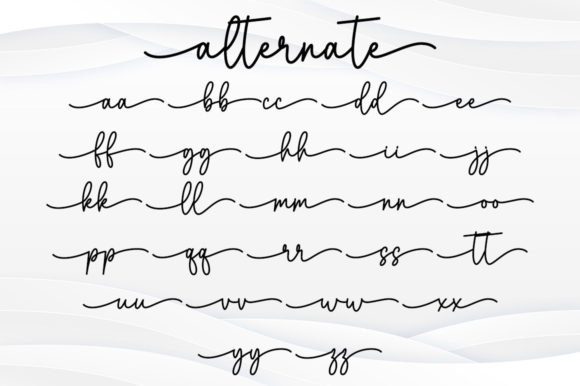 alternate
aa bb cc dd ee
ff gg hh ii jj
kk ll mm nn oo
pp qq rr ss tt
uu vv ww xx
yy zz